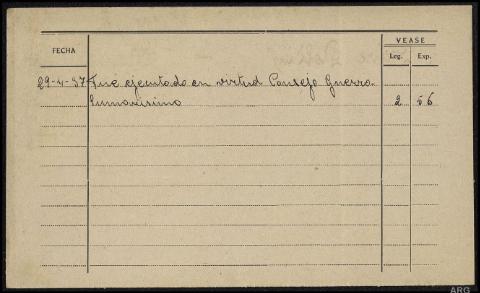 VEASE
FECHA
Leg. Exp.
29-4-37 Fue ejecutado en virtud Consejo Guerra
sumarisimo 2 56
ARG